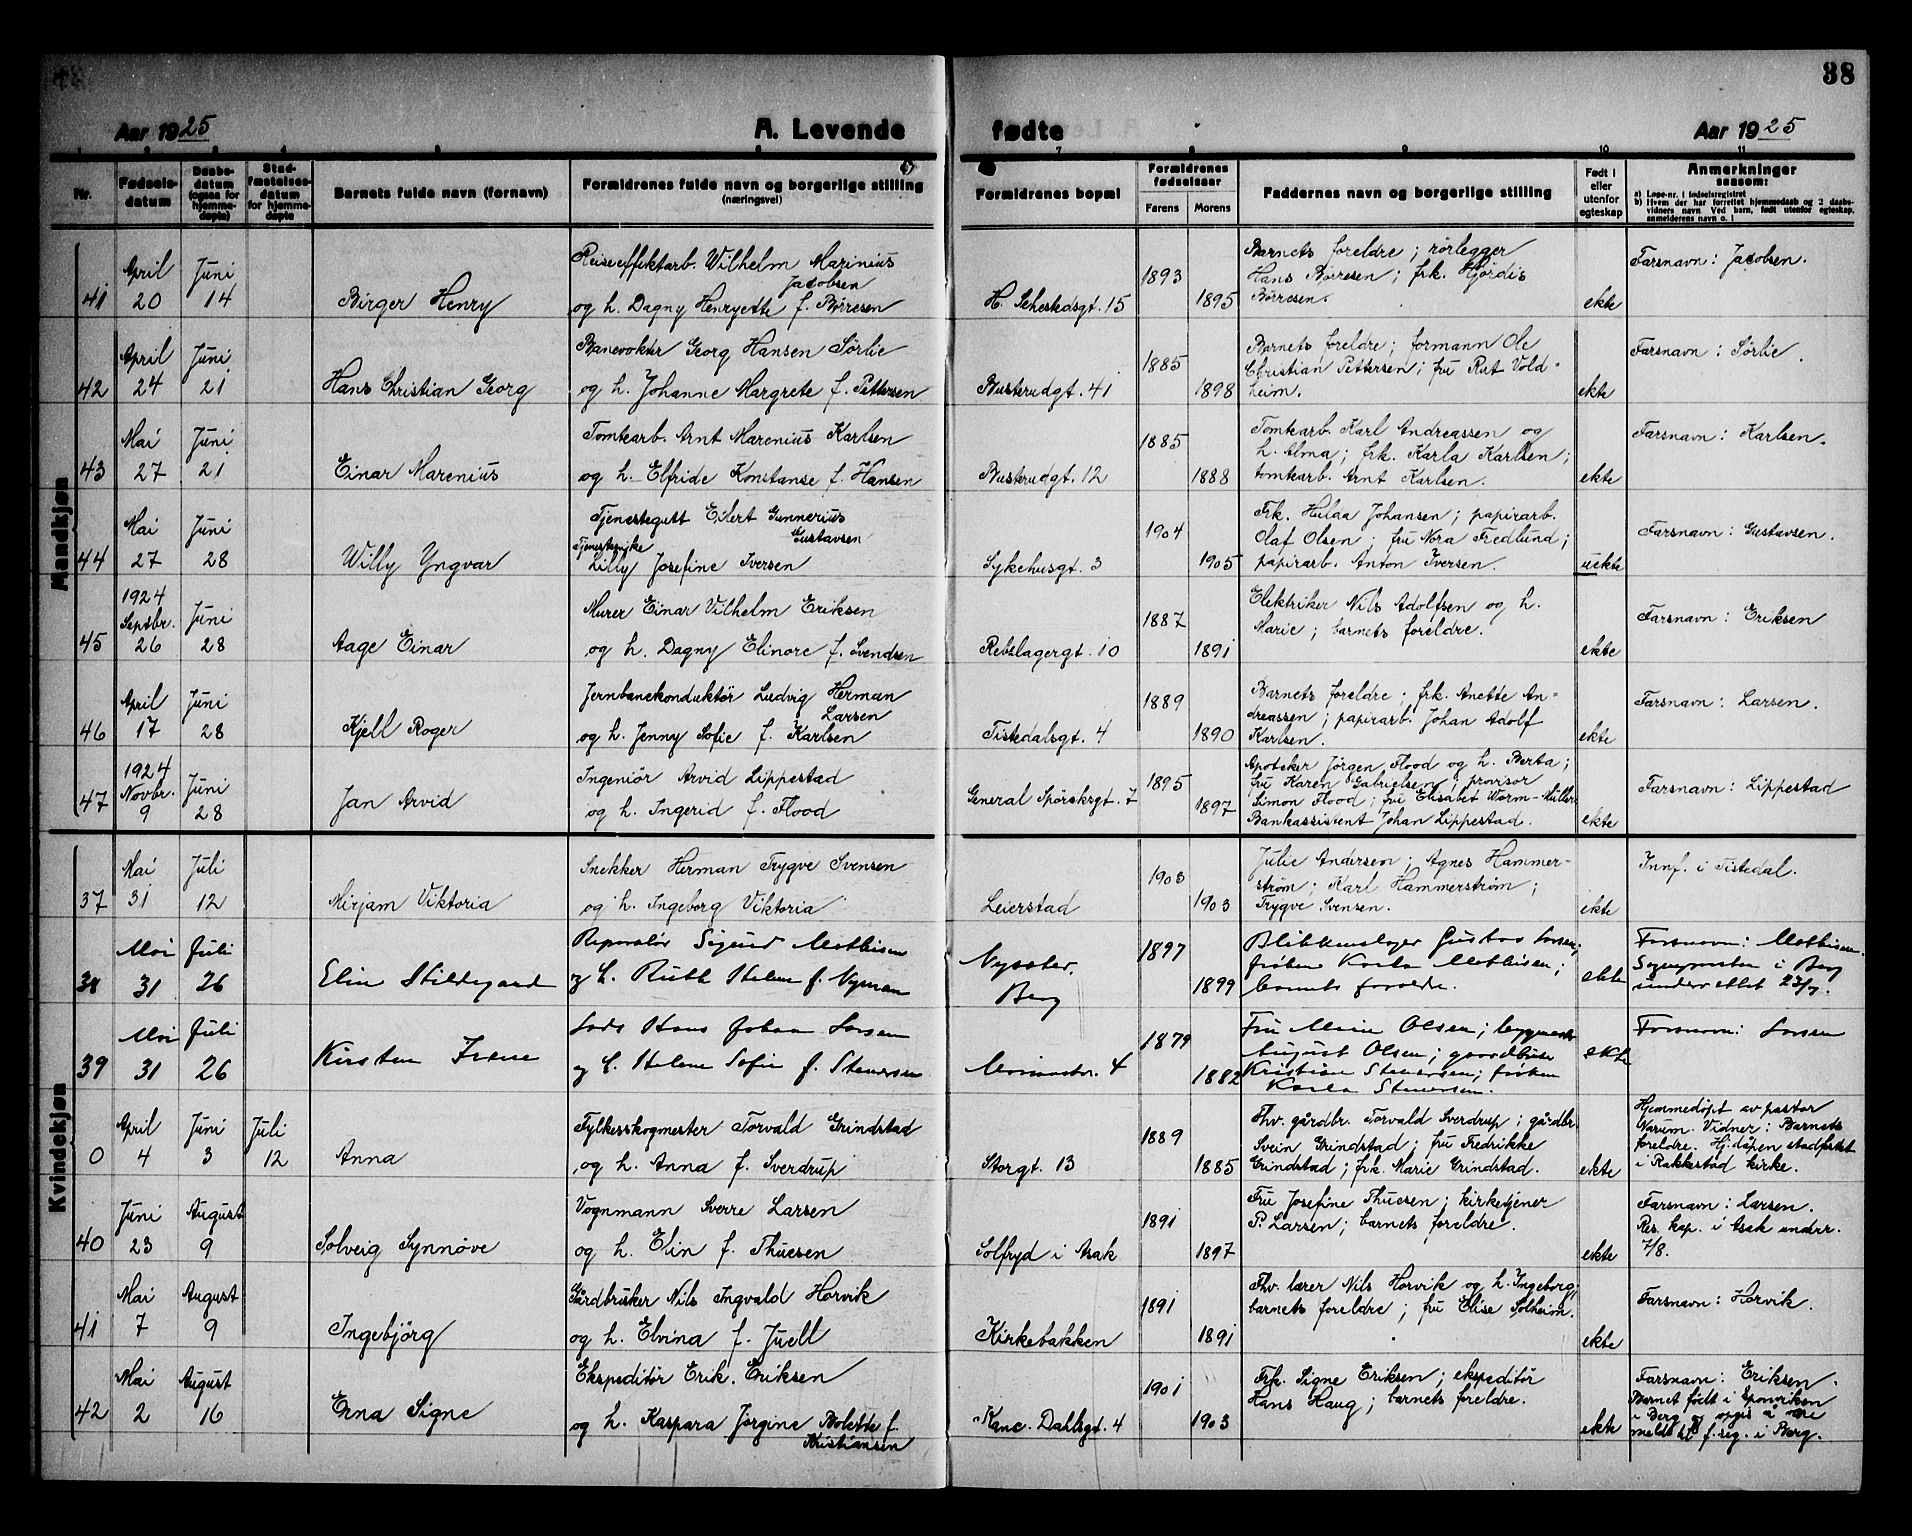 38
Aar 1925 A. Levende fødte Aar 1925
1 2 3 4 5 6 7 8 9 10 11
Nr. Fødselsdatum Daabsdatum (ogsaa for hjemmedøpte) Stadfæstelsesdatum for hjemmedøpte Barnets fulde navn (fornavn) Forældrenes fulde navn og borgerlige stilling (næringsvei) Forældrenes bopæl Forældrenes fødselsaar Farens Morens Faddernes navn og borgerlige stilling Født i eller utenfor egteskap Anmerkninger saasom:
a) Løpe-nr. i fødselsregistret
b) Hvem der har forrettet hjemmedaab og 2 daabsvidners navn. Ved barn, født utenfor egteskap, anmelderens navn o. l.
Mandkjøn
41 April 20 Juni 14 Birger Henry
Reiseeffektarb. Wilhelm Marinius
Jacobsen
og h. Dagny Henryette f. Børresen
H. Sehestedsgt. 15 1893 1895
Barnets foreldre; rørlegger
Hans Børresen; frk. Hjørdis
Børresen.
ekte Farsnavn: Jacobsen.
42 April 24 Juni 21 Hans Christian Georg
Banevokter Georg Hansen Sørlie
og h. Johanne Margrete f. Pettersen
Busterudgt. 41 1885 1898
Barnets foreldre; formann Ole
Christian Pettersen; fru Rut Vold-
heim.
ekte Farsnavn: Sørlie.
43 Mai 27 Juni 21 Einar Marenius
Tomtearb. Arnt Marenius Karlsen
og h. Elfride Konstanse f. Hansen
Busterudgt. 12 1885 1888
Tomtearb. Karl Andreassen og
h. Alma; frk. Karla Karlsen;
tomtearb. Arnt Karlsen.
ekte Farsnavn: Karlsen.
44 Mai 27 Juni 28 Willy Yngvar
Tjenestegutt Eilert Gunnerius
Gustavsen
Tjenestepike
Lilly Josefine Iversen
Sykehusgt. 3 1904 1905
Frk. Hulda Johansen; papirarb.
Olaf Olsen; fru Nora Fredlund;
papirarb. Anton Iversen.
uekte Farsnavn: Gustavsen.
45 1924 Septbr. 26 Juni 28 Aage Einar
Murer Einar Vilhelm Eriksen
og h. Dagny Elinore f. Svendsen
Rebslagergt. 10 1887 1891
Elektriker Nils Adolfsen og h.
Marie; barnets foreldre.
ekte Farsnavn: Eriksen
46 April 17 Juni 28 Kjell Roger
Jernbanekonduktør Ludvig Herman
Larsen
og h. Jenny Sofie f. Karlsen
Tistedalsgt. 4 1889 1890
Barnets foreldre; frk. Anette An-
dreassen; papirarb. Johan Adolf
Karlsen.
ekte Farsnavn: Larsen.
47 1924 Novbr. 9 Juni 28 Jan Arvid
Ingeniør Arvid Lippestad
og h. Ingerid f. Flood
General Spørckgt. 7 1895 1897
Apoteker Jørgen Flood og h. Berta;
fru Karen Gabrielsen; provisor
Simon Flood; fru Elisabet Worm-Müller
Bankassistent Johan Lippestad.
ekte Farsnavn: Lippestad
Kvindekjøn
37 Mai 31 Juli 12 Mirjam Viktoria
Snekker Herman Trygve Svensen
og h. Ingeborg Viktoria
Leierstad 1903 1903
Julie Andersen; Agnes Hammer-
strøm; Karl Hammerstrøm;
Trygve Svensen.
ekte Innf. i Tistedal.
38 Mai 31 Juli 26 Elin Hildegaard
Reparatør Sigurd Mathisen
og h. Ruth Helene f. Nyman
Berg 1897 1899
Blikkenslager Gustav Larsen;
frøken Karla Mathisen;
barnets foreldre.
ekte Farsnavn: Mathisen.
Sognepresten i Berg
underrettet 27/7.
39 Mai 31 Juli 26 Kirsten Irene
Lods Hans Johan Larsen
og h. Helene Sofie f. Stenersen
4 1879 1882
Fru Marie Olsen; byggmester
August Olsen; gaardbruker
Kristian Stenersen; frøken
Karla Stenersen.
ekte Farsnavn: Larsen
0 April 4 Juni 3 Juli 12 Anna
Fylkesskogmester Torvald Grindstad
og h. Anna f. Sverdrup
Storgt. 13 1889 1885
Fhv. gårdbr. Torvald Sverdrup; gårdbr.
Svein Grindstad; fru Fredrikke
Grindstad; frk. Marie Grindstad.
ekte Hjemmedøpt av pastor
Narum. Vidner: Barnets
foreldre. Hj.dåpen stadfestet
i Rakkestad kirke.
40 Juni 23 August 9 Solveig Synnøve
Vognmann Sverre Larsen
og h. Elin f. Thuesen
Solfryd i Asak 1891 1897
Fru Josefine Thuesen; kirketjener
P. Larsen; barnets foreldre.
ekte Farsnavn: Larsen.
Res. kap. i Asak underr.
7/8.
41 Mai 7 August 9 Ingebjørg
Gårdbruker Nils Ingvald Horvik
og h. Elvina f. Juell
Kirkebakken 1891 1891
Fhv. lærer Nils Horvik og h. Ingeborg;
barnets foreldre; fru Elise Solheim.
ekte Farsnavn: Horvik.
42 Mai 2 August 16 Erna Signe
Ekspeditør Erik Eriksen
og h. Kaspara Jørgine Bolette f.
Kristiansen
Kanc. Dahlsgt. 4 1901 1903
Frk. Signe Eriksen; ekspeditør
Hans Haug; barnets foreldre.
ekte Farsnavn: Eriksen.
Barnet født i Sponviken
i Berg og opgis å være
meldt til f.reg. i Berg.